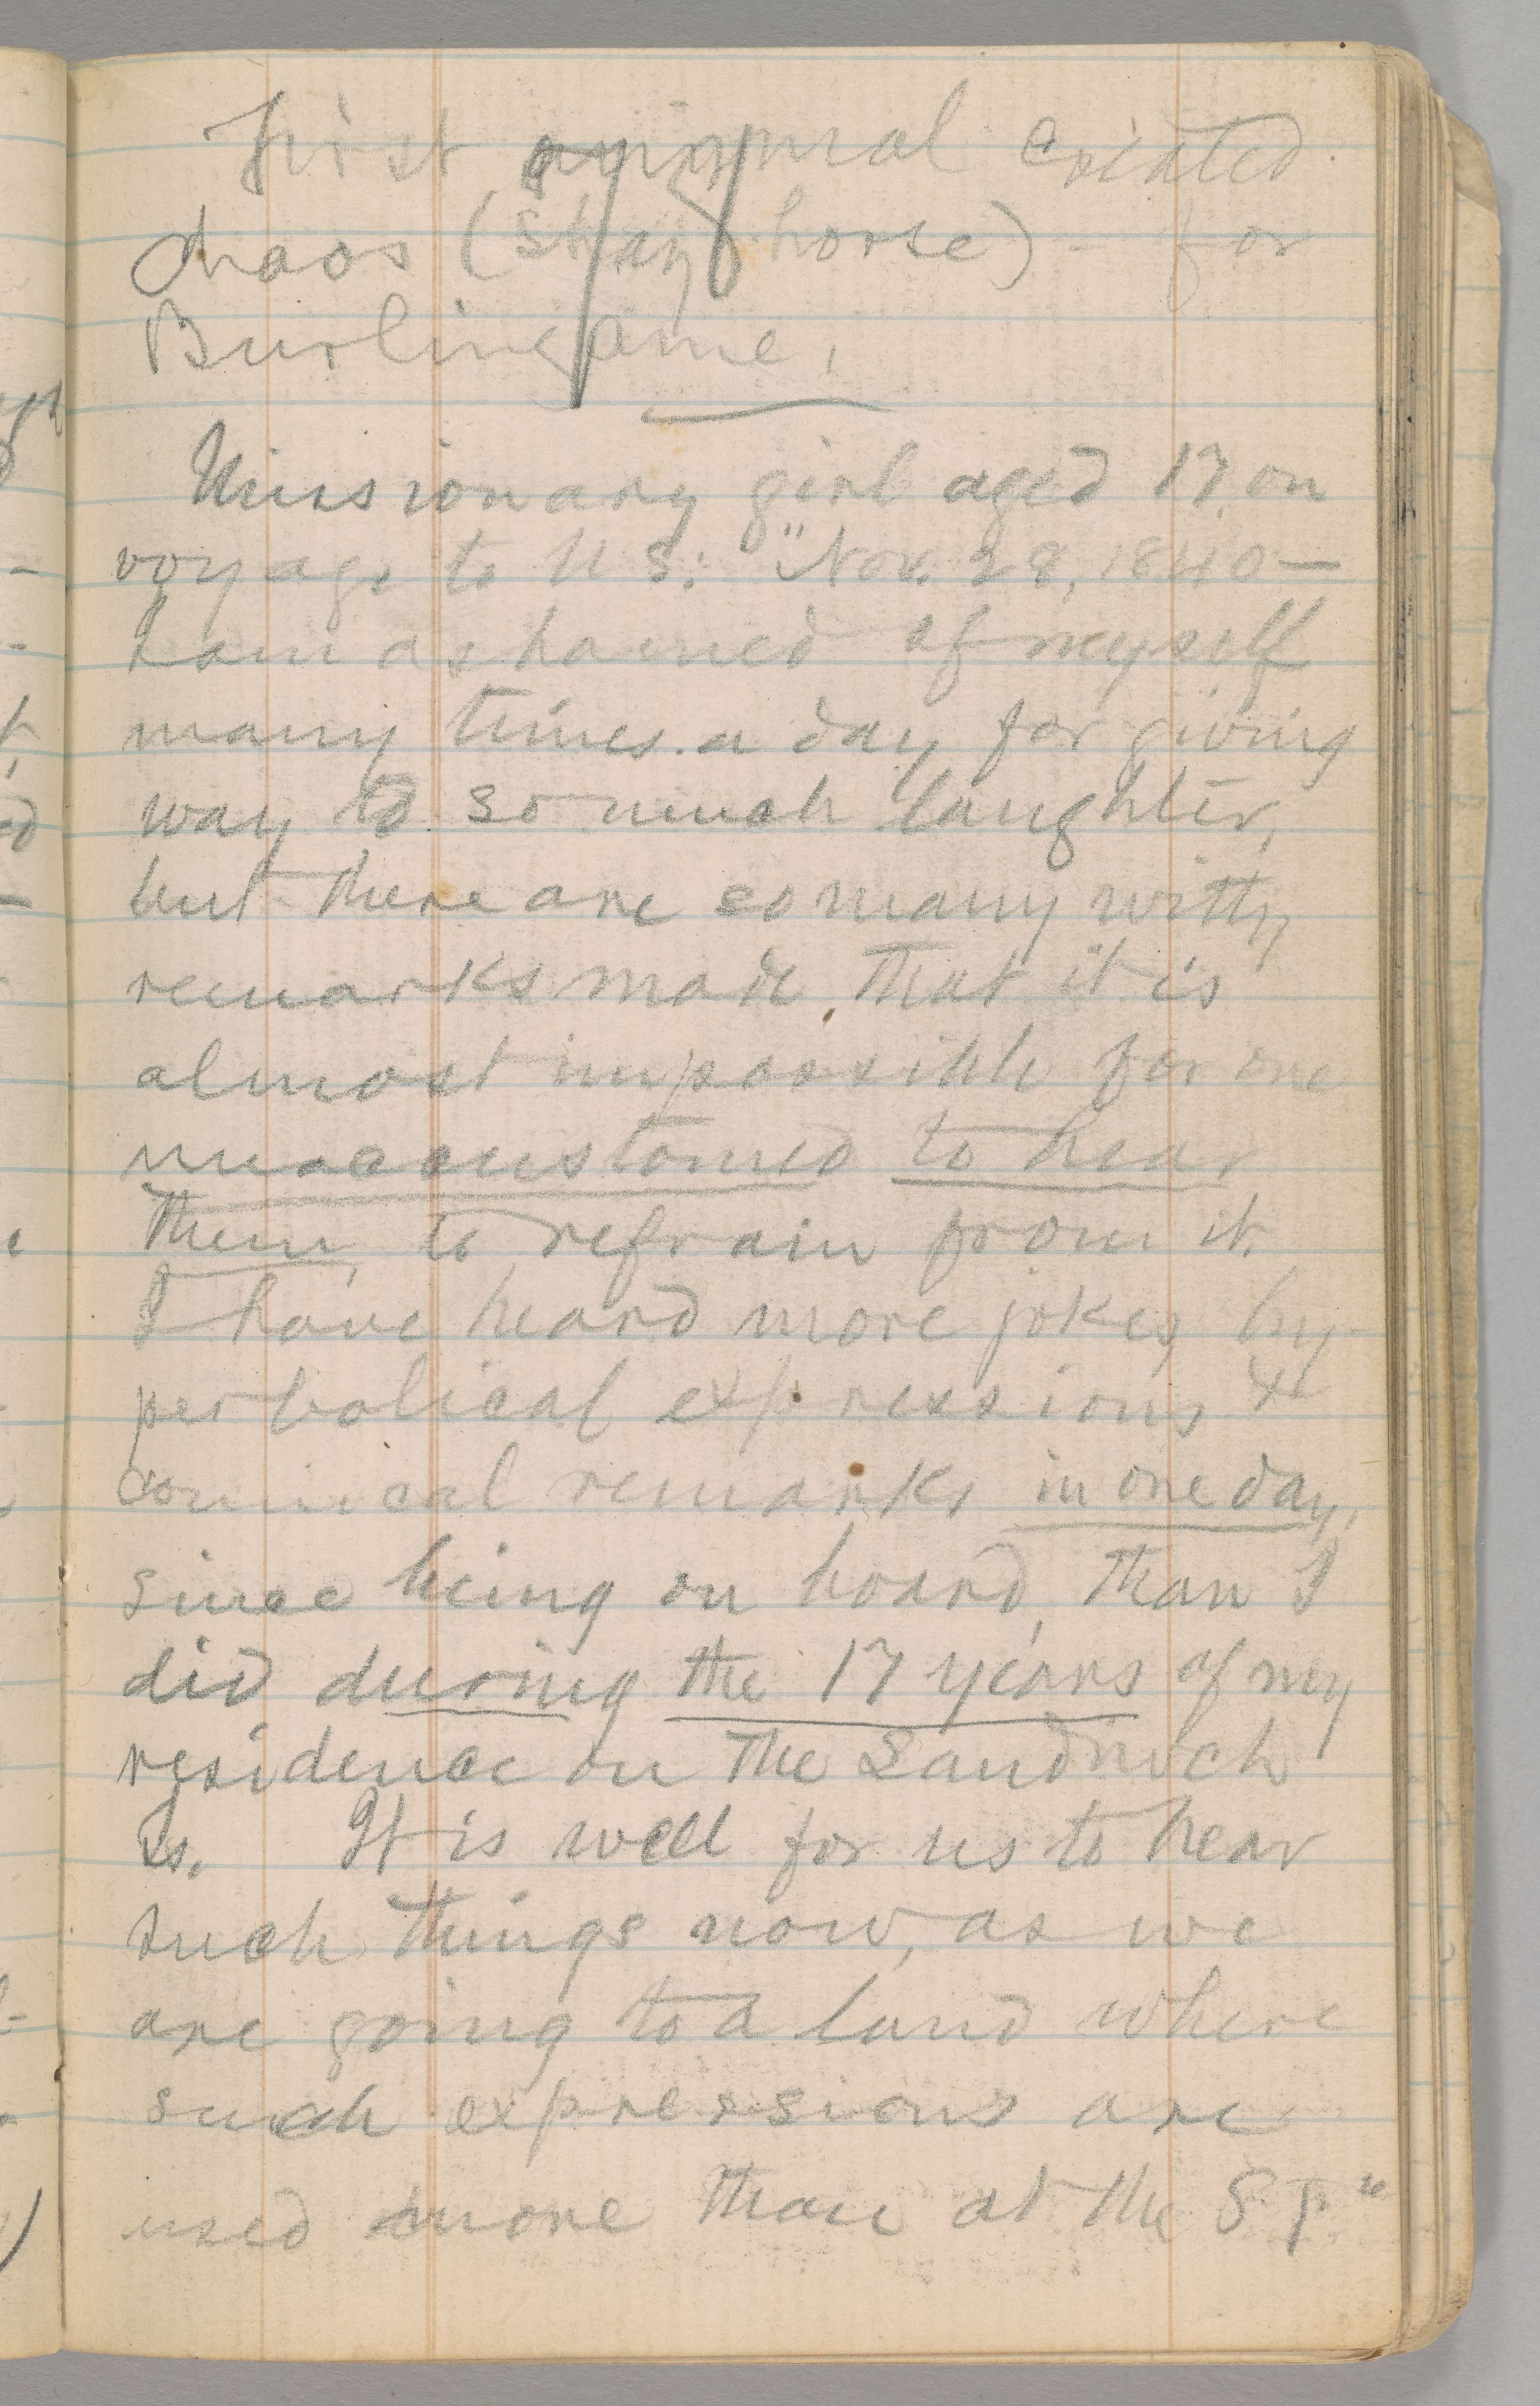 First animal created
chaos (Shay horse) – for
Burlingame.
Missionary girl aged 17 on
voyage to U S: "Nov. 28, 1840—
I am ashamed of myself
many times a day for giving
way to so much laughter,
but there are so many witty
remarks made, that it is
almost impossible for one
unaccustomed to hear
them, to refrain from it.
I have heard more jokes, hy-
perbolical expressions &
comical remarks in one day,
since being on board, than I
did during the 17 years of my
residence on the Sandwich
Is. It is well for us to hear
such things now, as we
are going to a land where
such expressions are
used more than at the S I."